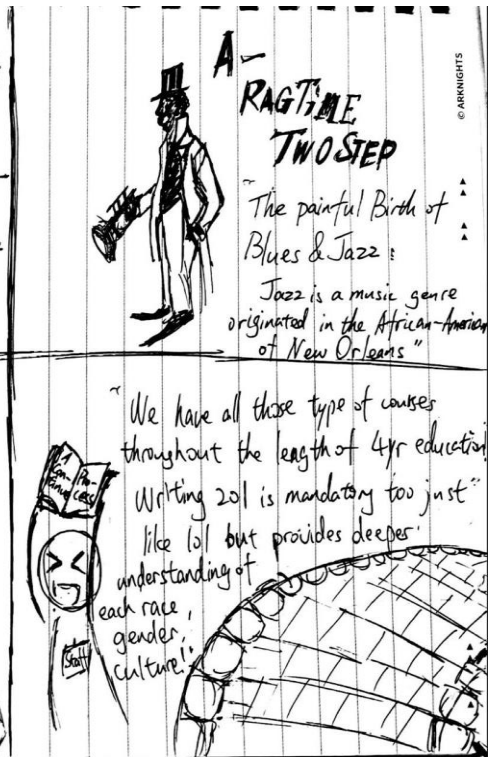 A-
RAGTIME
TWO STEP
© ARKNIGHTS
"The painful Birth of
Blues & Jazz :
Jazz is a music genre
originated in the African-American
of New Orleans"
"We have all those type of courses
throughout the length of 4yr education
Writing 201 is mandatory too just"
like 101 but provides deeper
understanding of
each race,
gender,
culture!"
A
Con-
tinued
Pro-
cess
Staff